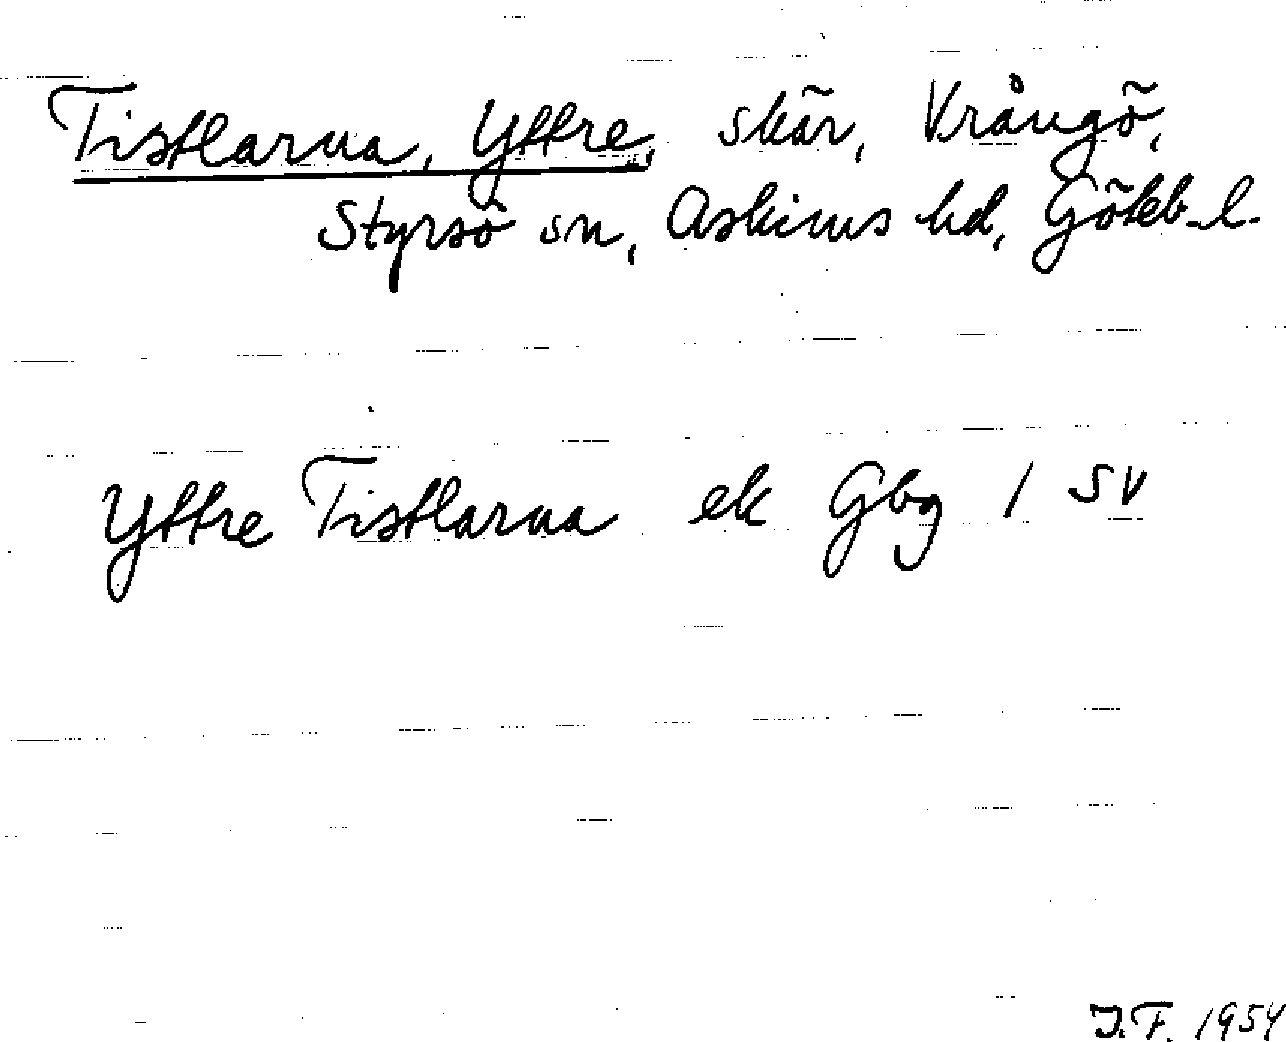 Tistlarna, Yttre, skär, Vrångö,
Styrsö sn, Askims hd, Göteb. l.
Yttre Tistlarna ek Gbg 1 SV
J.F. 1954